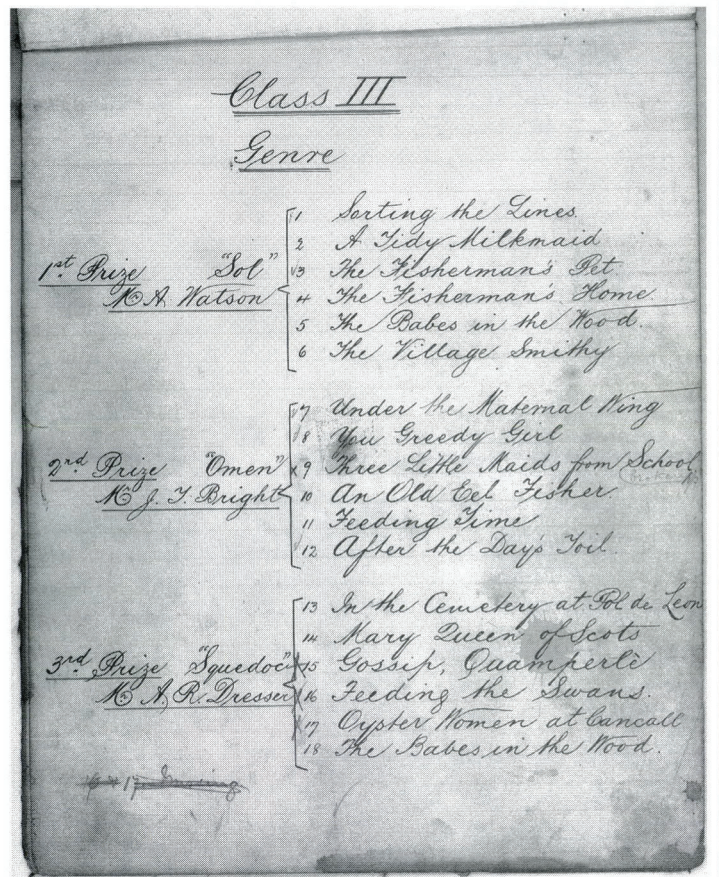 Class III
Genre
1st Prize "Sol"
Mr A. Watson
1 Sorting the Lines
2 A Tidy Milkmaid
3 The Fisherman's Pet
4 The Fisherman's Home
5 The Babes in the Wood.
6 The Village Smithy
2nd Prize "Omen"
Mr J. T. Bright
7 Under the Maternal Wing
8 You Greedy Girl
x9 Three Little Maids from School
10 An Old Eel Fisher.
11 Feeding Time
12 After the Day's Toil.
3rd Prize "Squedoc"
Mr A. R. Dresser
13 In the Cemetery at Pol de Leon
14 Mary Queen of Scots
15 Gossip, Quamperlè
16 Feeding the Swans.
17 Oyster Women at Cancall
18 The Babes in the Wood.